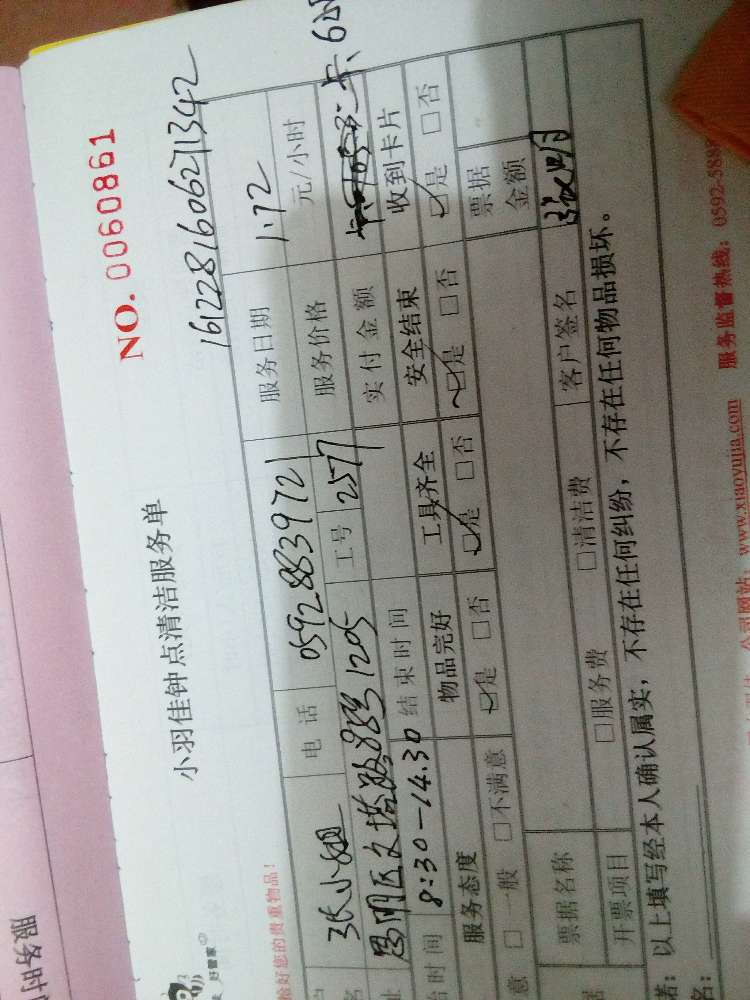 服务时
好管家
NO. 0060861
小羽佳钟点清洁服务单
1612281606271342
保管好您的贵重物品！
张小姐 电话 05928839721 服务日期 1.12
思明区文塔路88号1205 工号 2577 服务价格 元/小时
时间 8:30-14.30 结束时间 实付金额
服务态度 物品完好 工具齐全 安全结束 收到卡片
意 □一般 □不满意 ☑是 □否 ☑是 □否 ☑是 □否 ☑是 □否
票据金额
票据名称
开票项目 □服务费 □清洁费 客户签名
以上填写经本人确认属实，不存在任何纠纷，不存在任何物品损坏。
名：
公司网站：www.xiaoyujia.com 服务监督热线：0592-588